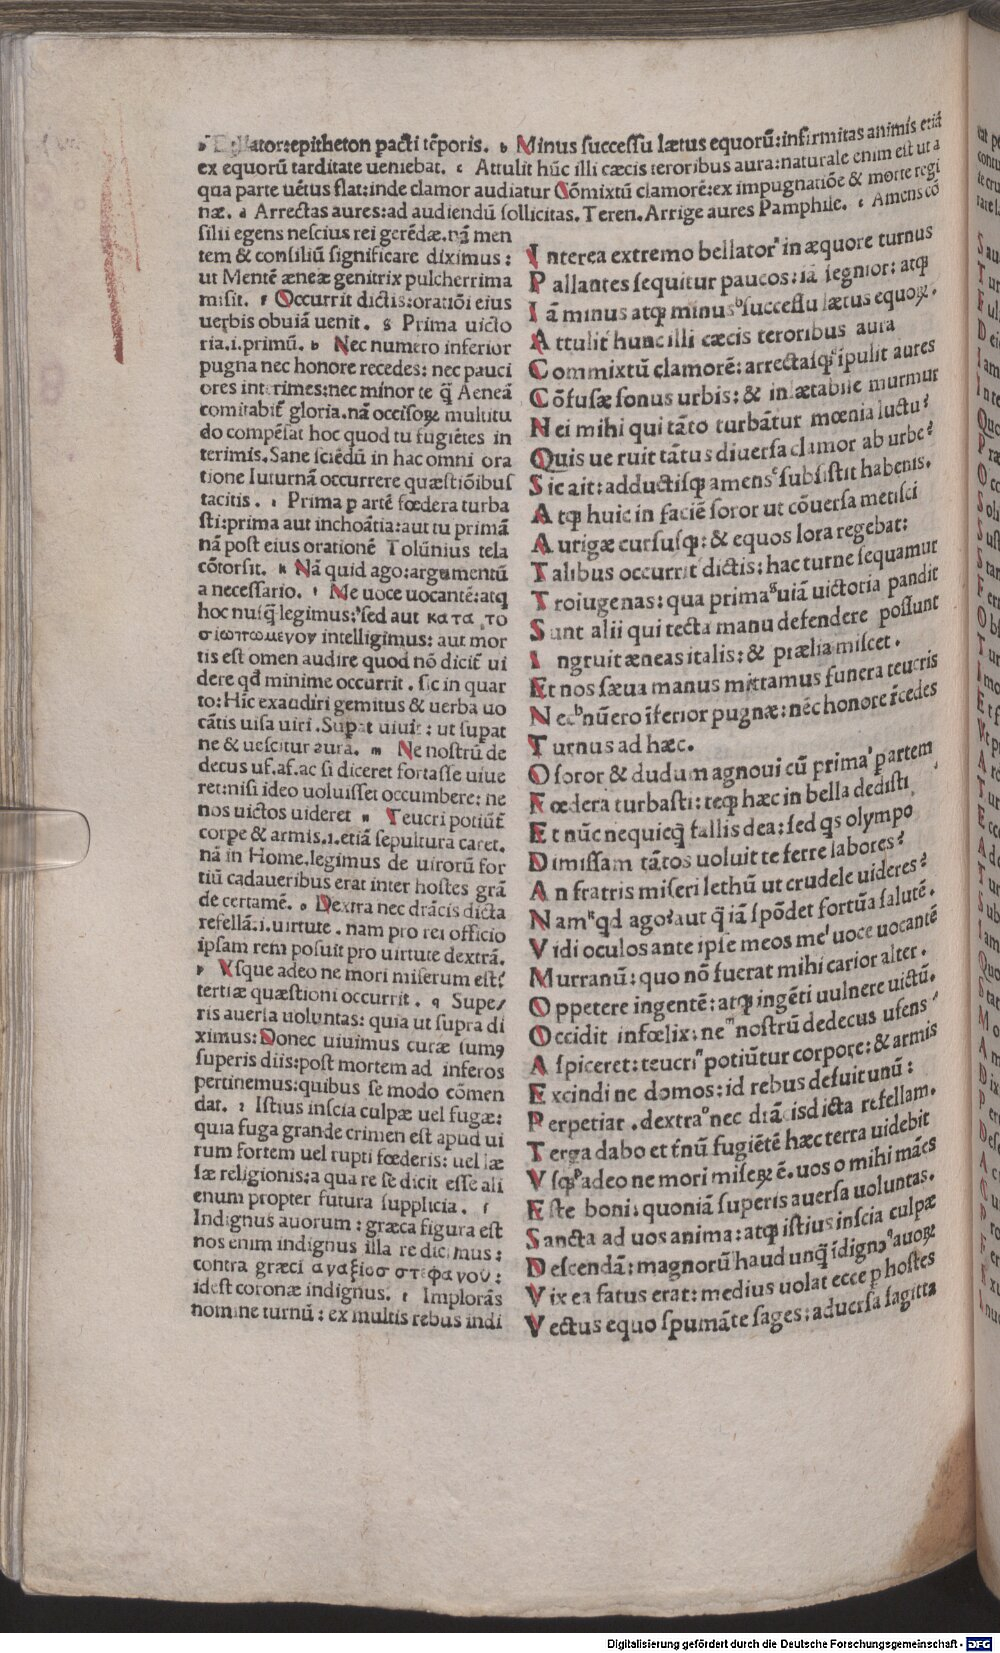 ª Bellator:epitheton pacti tẽporis. ᵇ Minus successu lætus equorũ:infirmitas animis etiã
ex equorũ tarditate ueniebat. ᶜ Attulit hũc illi cæcis teroribus aura:naturale enim est ut a
qua parte uẽtus flat:inde clamor audiatur Cõmixtũ clamorẽ:ex impugnatiõe & morte regi
næ. ᵈ Arrectas aures:ad audiendũ sollicitas.Teren.Arrige aures Pamphile. ᵉ Amens cõ
silii egens nescius rei gerẽdæ.nã men
tem & consiliũ significare diximus:
ut Mentẽ æneæ genitrix pulcherrima
misit. ᶠ Occurrit dictis:oratiõi eius
uerbis obuiã uenit. ᵍ Prima uicto
ria.i.primũ. ʰ Nec numero inferior
pugna nec honore recedes: nec pauci
ores interimes:nec minor te q̃ Aeneã
comitabit̃ gloria.nã occisoꝝ multitu
do compẽsat hoc quod tu fugiẽtes in
terimis.Sane sciẽdũ in hac omni ora
tione Iuturnã occurrere quæstiõibus
tacitis. ⁱ Prima p artẽ fœdera turba
sti:prima aut inchoãtia:aut tu primã
nã post eius orationẽ Tolũnius tela
cõtorsit. ᵏ Nã quid ago:argumentũ
a necessario. ˡ Me uoce uocantẽ:atq
hoc nusq̃ legimus:sed aut κατα το
σιωπωμενον intelligimus: aut mor
tis est omen audire quod nõ dicit̃ ui
dere qd̃ minime occurrit . sic in quar
to:Hĩc exaudiri gemitus & uerba uo
cãtis uisa uiri .Supat uiuit: ut supat
ne & uescitur aura. ᵐ Ne nostrũ de
decus uf.af.ac si diceret fortasse uiue
ret:nisi ideo uoluisset occumbere: ne
nos uictos uideret ⁿ Teucri potiũt̃
corpe & armis.i.etiã sepultura caret.
nã in Home.legimus de uirorũ for
tiũ cadaueribus erat inter hostes grã
de certamẽ. ᵒ Dextra nec drãcis dicta
refellã.i.uirtute . nam pro rei officio
ipsam rem posuit pro uirtute dextrã.
ᵖ Vsque adeo ne mori miserum est:
tertiæ quæstioni occurrit . ᑫ Supe/
ris auersa uoluntas: quia ut supra di
ximus:Donec uiuimus curæ sumꝯ
superis diis:post mortem ad inferos
pertinemus:quibus se modo cõmen
dat. ʳ Istius inscia culpæ uel fugæ:
quia fuga grande crimen est apud ui
rum fortem uel rupti fœderis: uel læ
sæ religionis:a qua re se dicit esse ali
enum propter futura supplicia. ˢ
Indignus auorum : græca figura est
nos enim indignus illa re dicimus:
contra græci αναξιοσ στεφανου:
idest coronæ indignus. ᵗ Implorãs
nomine turnũ : ex multis rebus indi
Interea extremo bellatorª in æquore turnus
Pallantes sequitur paucos:iã segnior: atq
Iã minus atq minusᵇ successu lætus equoꝝ.
Attulitᶜ hunc illi cæcis teroribus aura
Commixtũ clamorẽ: arrectasqᵈ ĩpulit aures
Cõfusæ sonus urbis: & inlætabile murmur
Nei mihi qui tãto turbãtur mœnia luctu?
Quis ue ruit tãtus diuersa clamor ab urbe?
Sic ait:adductisq amensᵉ subsistit habenis.
Atq huic in faciẽ soror ut cõuersa metisci
Aurigæ cursusq: & equos lora regebat:
Talibus occurritᶠ dictis: hac turne sequamur
Troiugenas: qua primaᵍ uiã uictoria pandit
Sunt alii qui tecta manu defendere possunt
Ingruit æneas italis: & prælia miscet.
Et nos sæua manus mittamus funera teucris
Necʰ nũero ĩferior pugnæ: nec honore rẽcedes
Turnus ad hæc.
O soror & dudum agnoui cũ primaⁱ partem
Fœdera turbasti: teq hæc in bella dedisti
Et nũc nequicq̃ fallis dea: sed qs olympo
Dimissam tãtos uoluit te ferre labores?
An fratris miseri lethũ ut crudele uideres?
Namᵏ qd ago: aut q̃ iã spõdet fortũa salutẽ.
Vidi oculos ante ipse meos meˡ uoce uocantẽ
Murranũ: quo nõ fuerat mihi carior alter.
Oppetere ingentẽ: atq ingẽti uulnere uictũ.
Occidit infœlix: neᵐ nostrũ dedecus ufens
Aspiceret: teucriⁿ potiũtur corpore: & armis
Excindi ne domos: id rebus defuit unũ:
Perpetiar . dextraᵒ nec drãcis dicta refellam.
Terga dabo et t̃nũ fugiẽtẽ hæc terra uidebit
Vsqᵖ adeo ne mori miseꝝ ẽ. uos o mihi mães
Este boni: quoniã superis auersa uoluntas.
Sancta ad uos anima: atq istius inscia culpæ
Descendã: magnorũ haud unq̃ ĩdignꝯ auoꝝ
Vix ea fatus erat: medius uolat ecce p hostes
Vectus equo spumãte sages: aduersa sagitta
Digitalisierung gefördert durch die Deutsche Forschungsgemeinschaft - DFG